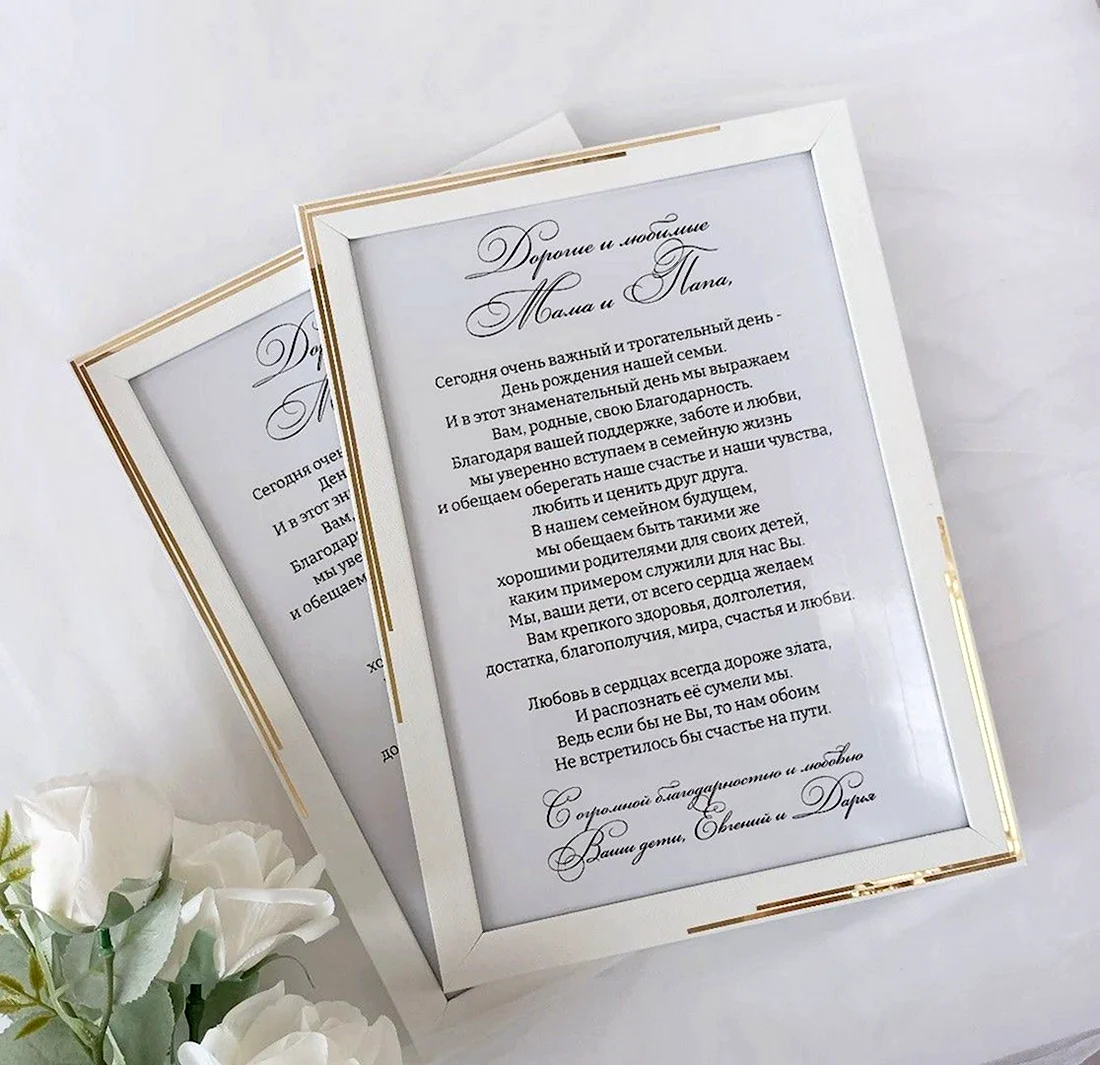 Дорогие и любимые
Мама и Папа,
Сегодня очень важный и трогательный день -
День рождения нашей семьи.
И в этот знаменательный день мы выражаем
Вам, родные, свою Благодарность.
Благодаря вашей поддержке, заботе и любви,
мы уверенно вступаем в семейную жизнь
и обещаем оберегать наше счастье и наши чувства,
любить и ценить друг друга.
В нашем семейном будущем,
мы обещаем быть такими же
хорошими родителями для своих детей,
каким примером служили для нас Вы.
Мы, ваши дети, от всего сердца желаем
Вам крепкого здоровья, долголетия,
достатка, благополучия, мира, счастья и любви.
Любовь в сердцах всегда дороже злата,
И распознать её сумели мы.
Ведь если бы не Вы, то нам обоим
Не встретилось бы счастье на пути.
С огромной благодарностью и любовью
Ваши дети, Евгений и Дарья
Сегодня
И в
Вам,
и обещаем